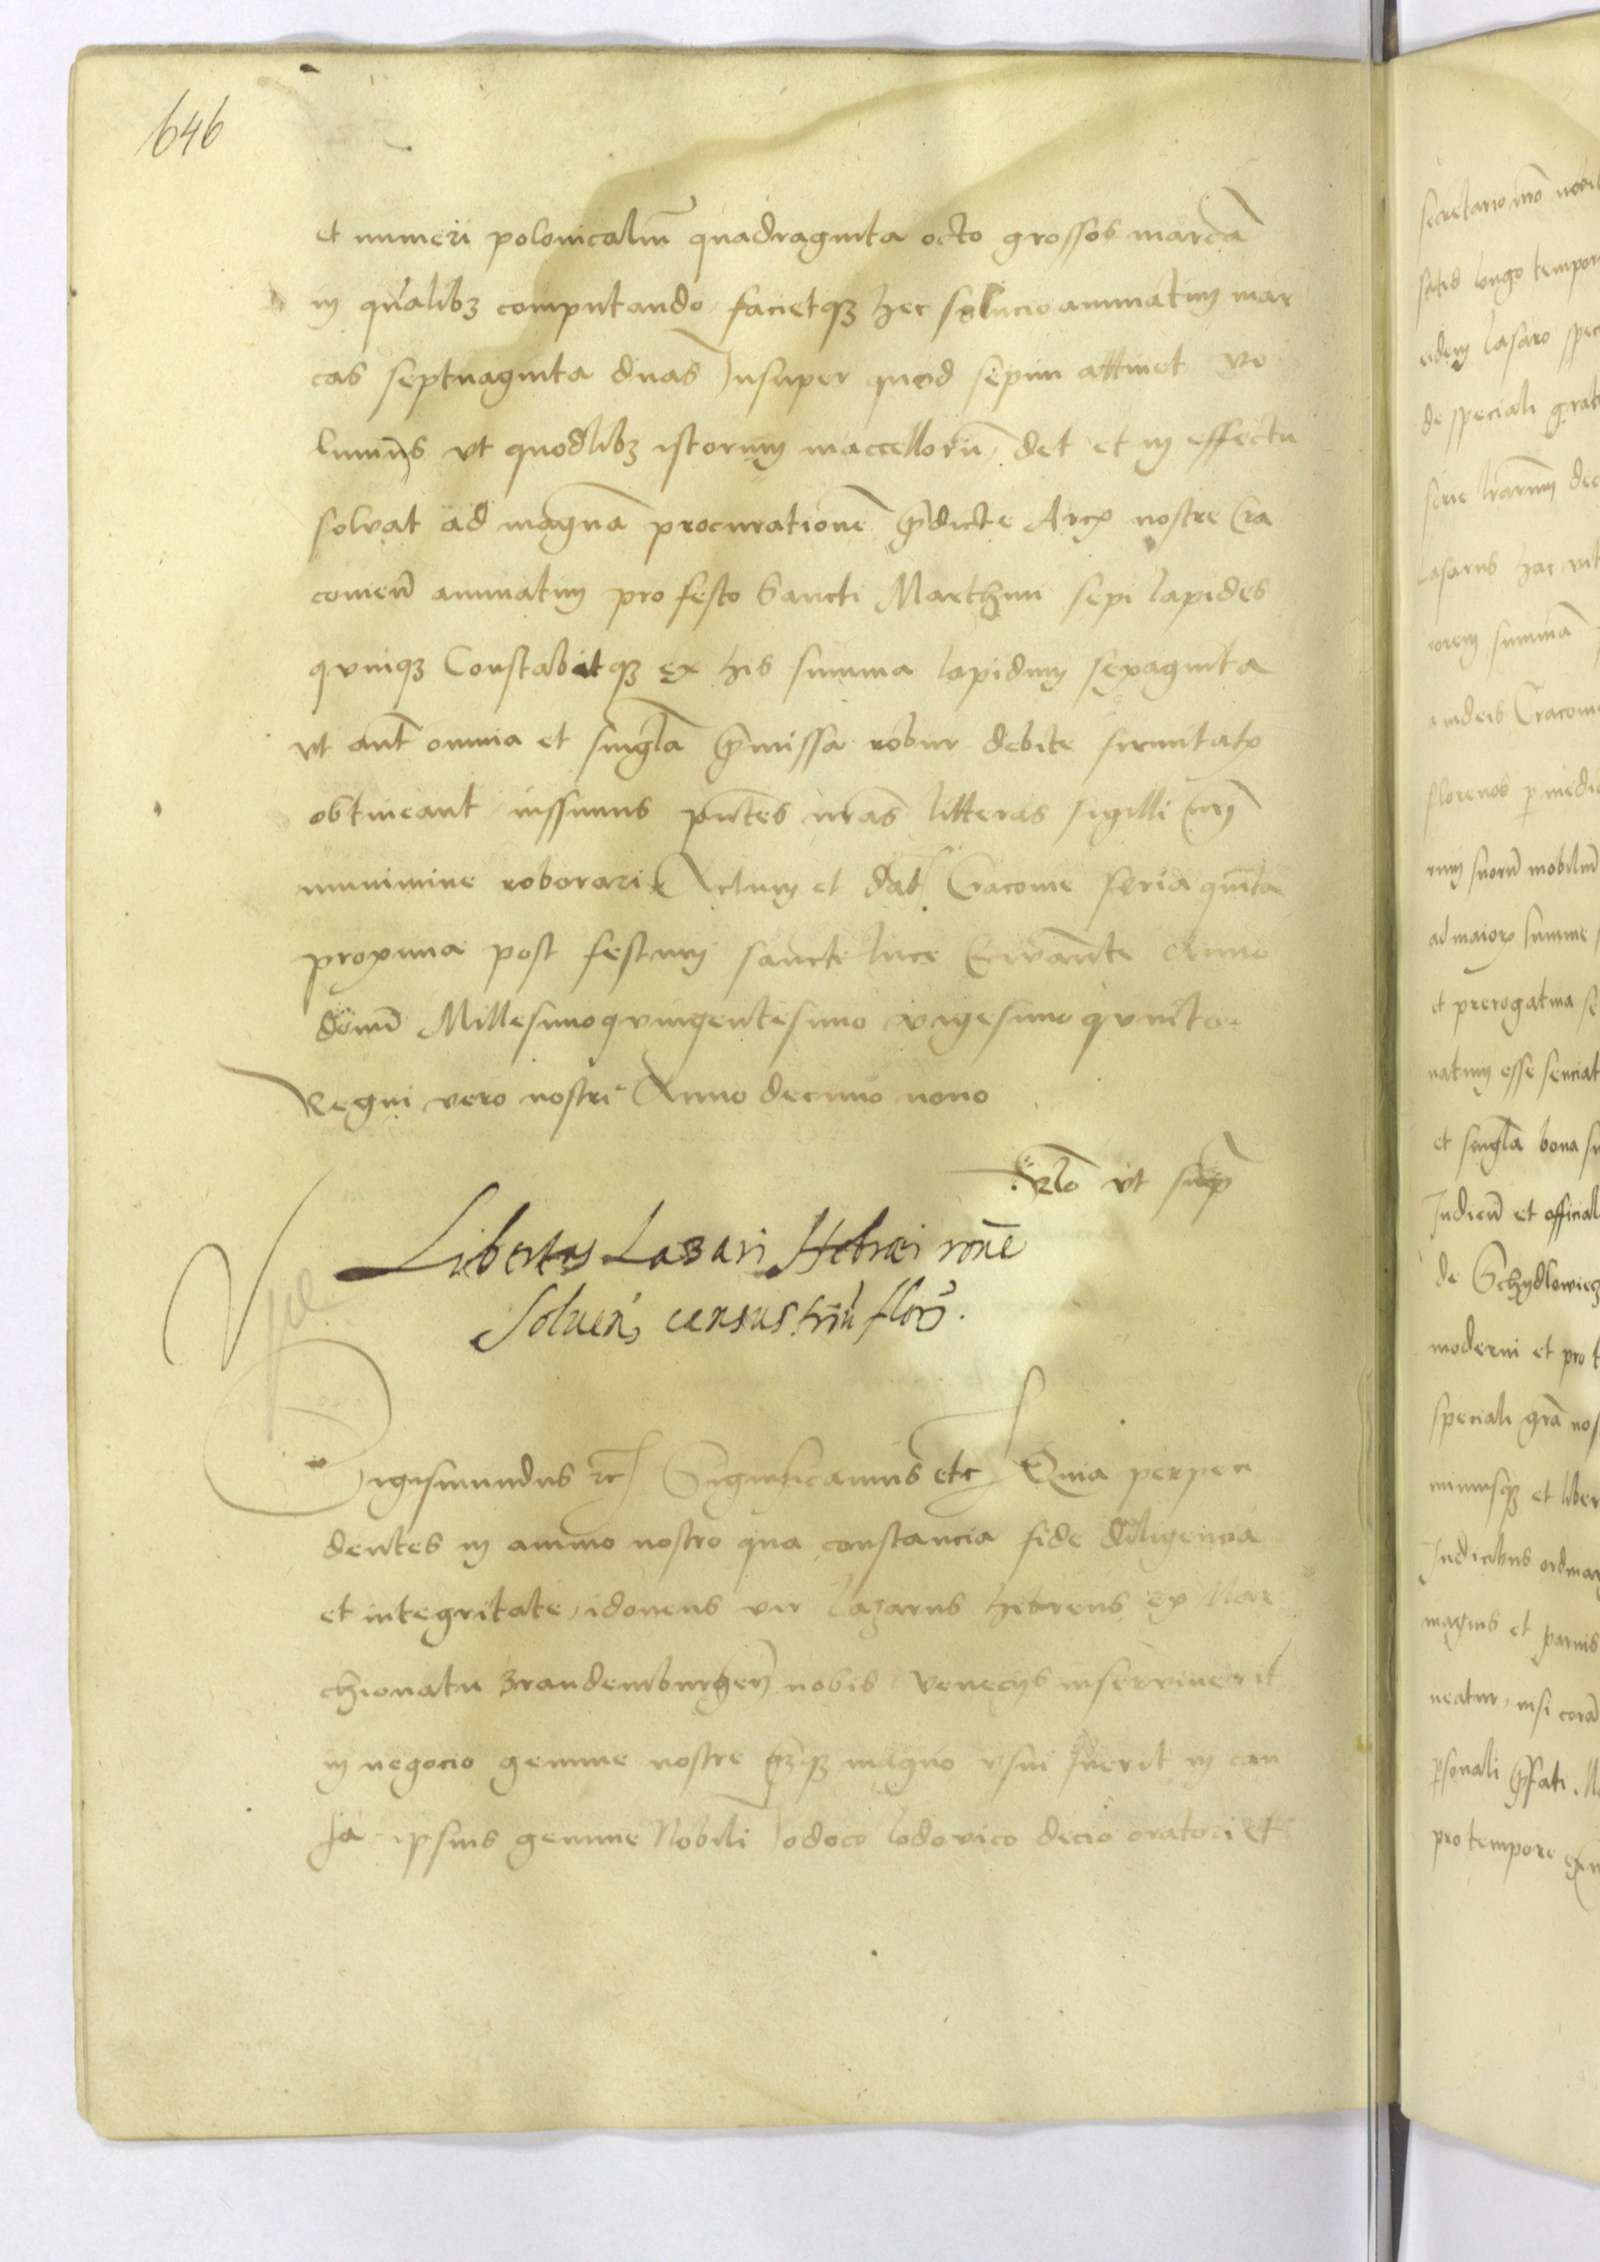 646
et numeri polonicaliu quadraginta octo grossos marca
in qualibꝫ computando facietqꝫ hec solucio annuatim mar
cas septuaginta duas Insuper quod sepum attinet vo
lumus vt quodlibꝫ istorum maccelloru det et in effectu
soluat ad magna procuratione p̄dicte Arcꝭ nostre Cra
couien̄ annuatim pro festo Sancti Marthini sepi lapides
qvinqꝫ Constabitqꝫ ex his summa lapidum sexaginta
vt aut omnia et singla p̄missa robur debite firmitatꝭ
obtineant iussimus pn̄tes nr̄as litteras sigilli nr̄i
munimine roborari Actum et dat Cracouie feria qunta
proxima post festum sancti luce Ewante Anno
domi Millesimoqvingentesimo vigesimo qvinto
Regni vero nostri Anno decimo nono
Rlo vt sup
Libertas Lazari Hebræi rōne
Soluen census triu flor
Sigismundus ꝛc Significamus etc Quia perpen
dentes in animo nostro qua constancia fide diligencia
et integritate idoneus vir lazarus hebreus ex Mar
chionatu Brandemburgen nobis venecijs inseruiuerit
in negocio gemme nostre qꝫqꝫ magno vsui fuerit in cau
sa ipsius gemme Nobili Iodoco lodovico decio oratori et
secretario nr̄o
satis longo tempor
eidem lasaro spec
de speciali grat
serie lrarum dec
Lasarus hac
orem summa
iudeis Cracoui
florenos p medi
rum suoru mobiliu
ad maiorꝭ summe
et prerogatiua se
natum esse senciat
et singla bona su
Iudicu et official
de Schydlowiecz
moderni et pro t
speciali gra nos
mimusqꝫ et liber
Iudicibus ordinar
magnis et paruis
neatur, nisi cora
psonali p̄fati M
pro tempore